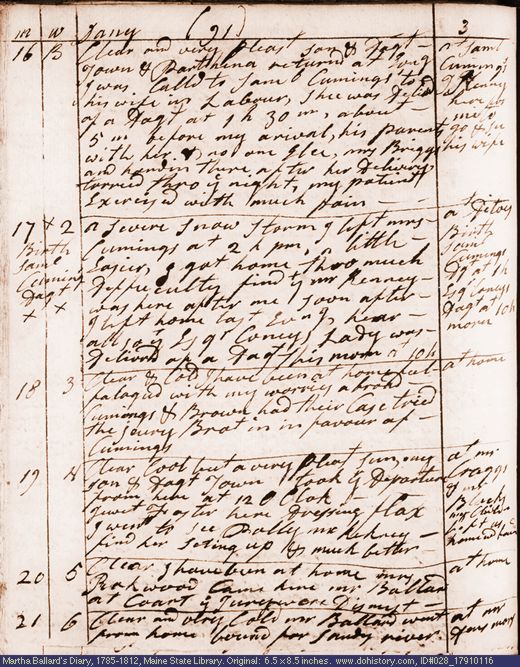 m w Jany (91) 3
16 B Clear and very Pleast Son & Dagt
Town & Parthena returnd at Evng
I was Calld to Saml Cumings to
his wife in Labour, Shee was Delivd
of a Dagt at 1 h 30 m, about
5 m before my arival, his parents
with her & no one Else, mr Briggs
and here after her Delivery
tarried thro ye night, my patient
Exercised with much pain
at Saml
Cumings
here for
me to
go & see
his wife
17 + 2 a Severe Snow Storm I left mrs
Cumings at 2 h pm, a little
Easier, I got home thro much
Difficulty find yt mr Kenney
was here after me Soon after
I left home last Evng, hear
allso yt Esqr Coneys Lady was
Deliverd of a Dagt this morn at 10 h
Birth
Saml
Cumings
Dagt +
x x
at Ditoes
Birth
Saml
Cumings
Dg at 1h
Esqr Coneys
Dagt at 10h
morn
18 3 Clear & Cold I have been at home fa
tagued with my worries abroad
Cumings & Brown had their Case tried
the jeury Brot in in favour of
Cumings
at home
19 4 Clear Cool but a very Pleast Sun, my
Son & Dagt Town took ye Departure
from here at 12 O Clok
Foster here Dressing flax
I went to see Polly
find her Seting up & much better
at mr
Craggs
20 5 Clear I have been at home mrs
Rockwood Came here mr Ballard
at Coart ye jurys were Dismist
at home
21 6 Clear and very Cold mr Ballard went
from home bound for Sandy river
at mr
Densmores
Martha Ballard's Diary, 1785-1812, Maine State Library. Original: 6.5 x 8.5 inches. www.dohistory.com, ID#028_17910116